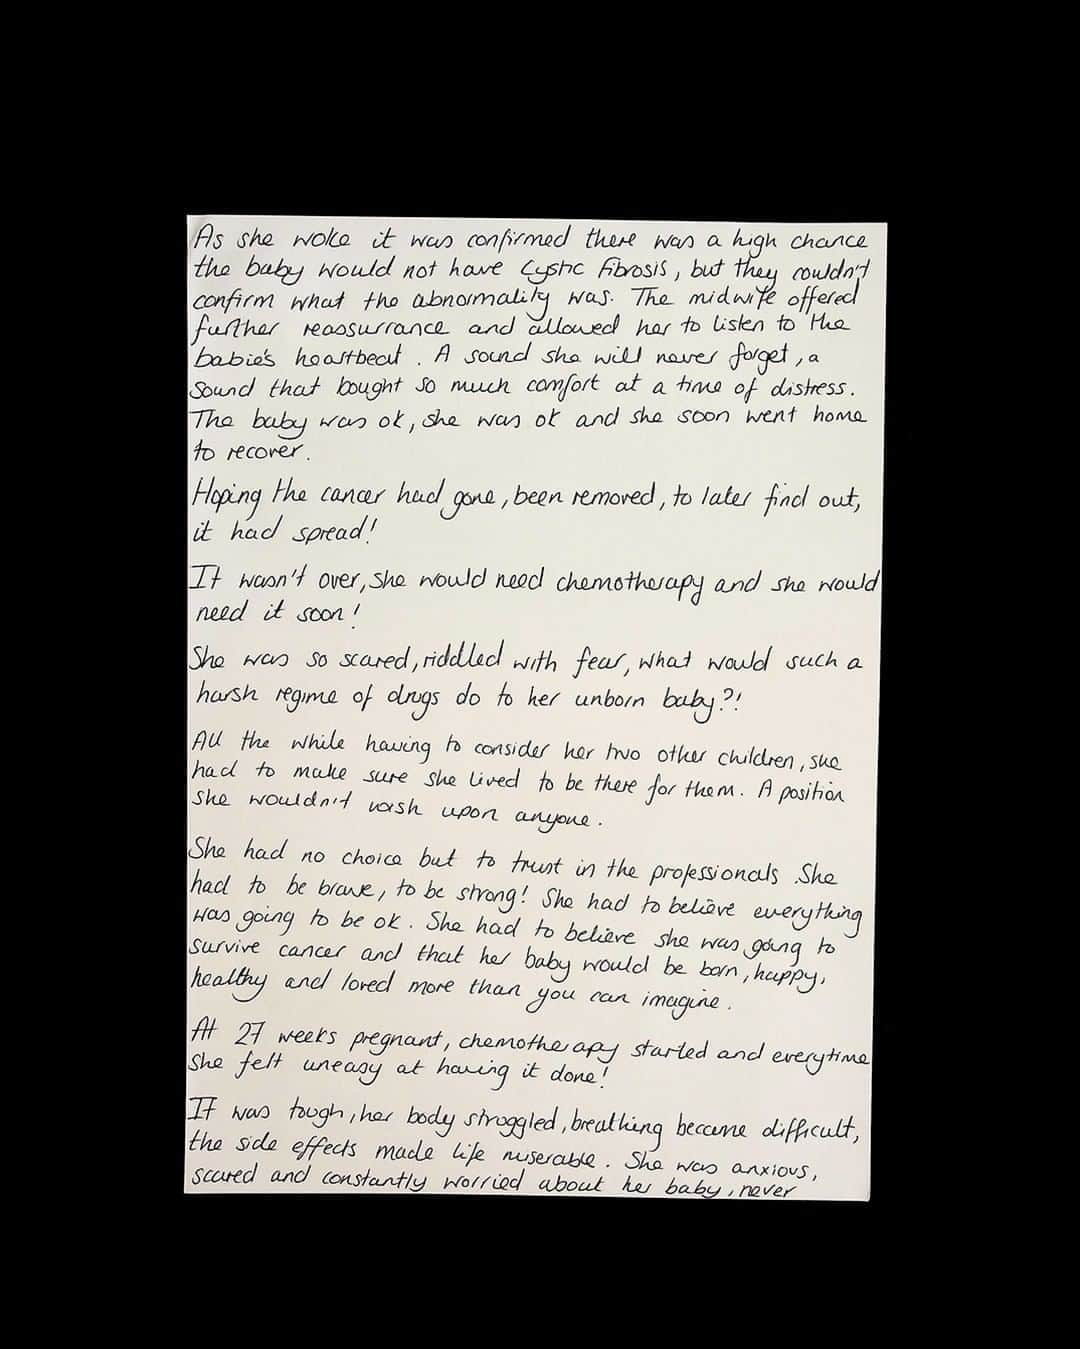 As she woke it was confirmed there was a high chance
the baby would not have Cystic Fibrosis, but they couldn't
confirm what the abnormality was. The midwife offered
further reassurrance and allowed her to listen to the
babie's heartbeat. A sound she will never forget, a
sound that bought so much comfort at a time of distress.
The baby was ok, she was ok and she soon went home
to recover.
Hoping the cancer had gone, been removed, to later find out,
it had spread!
It wasn't over, she would need chemotherapy and she would
need it soon!
She was so scared, riddled with fear, what would such a
harsh regime of drugs do to her unborn baby?!
All the while having to consider her two other children, she
had to make sure she lived to be there for them. A position
she wouldn't wish upon anyone.
She had no choice but to trust in the professionals. She
had to be brave, to be strong! She had to believe everything
was going to be ok. She had to believe she was going to
survive cancer and that her baby would be born, happy,
healthy and loved more than you can imagine.
At 27 weeks pregnant, chemotherapy started and everytime
she felt uneasy at having it done!
It was tough, her body struggled, breathing became difficult,
the side effects made life miserable. She was anxious,
scared and constantly worried about her baby, never